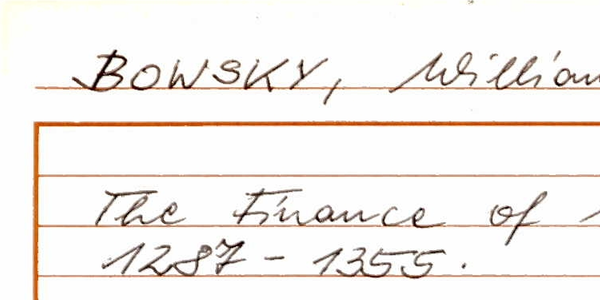 BOWSKY, William
The Finance of
1287 - 1355.